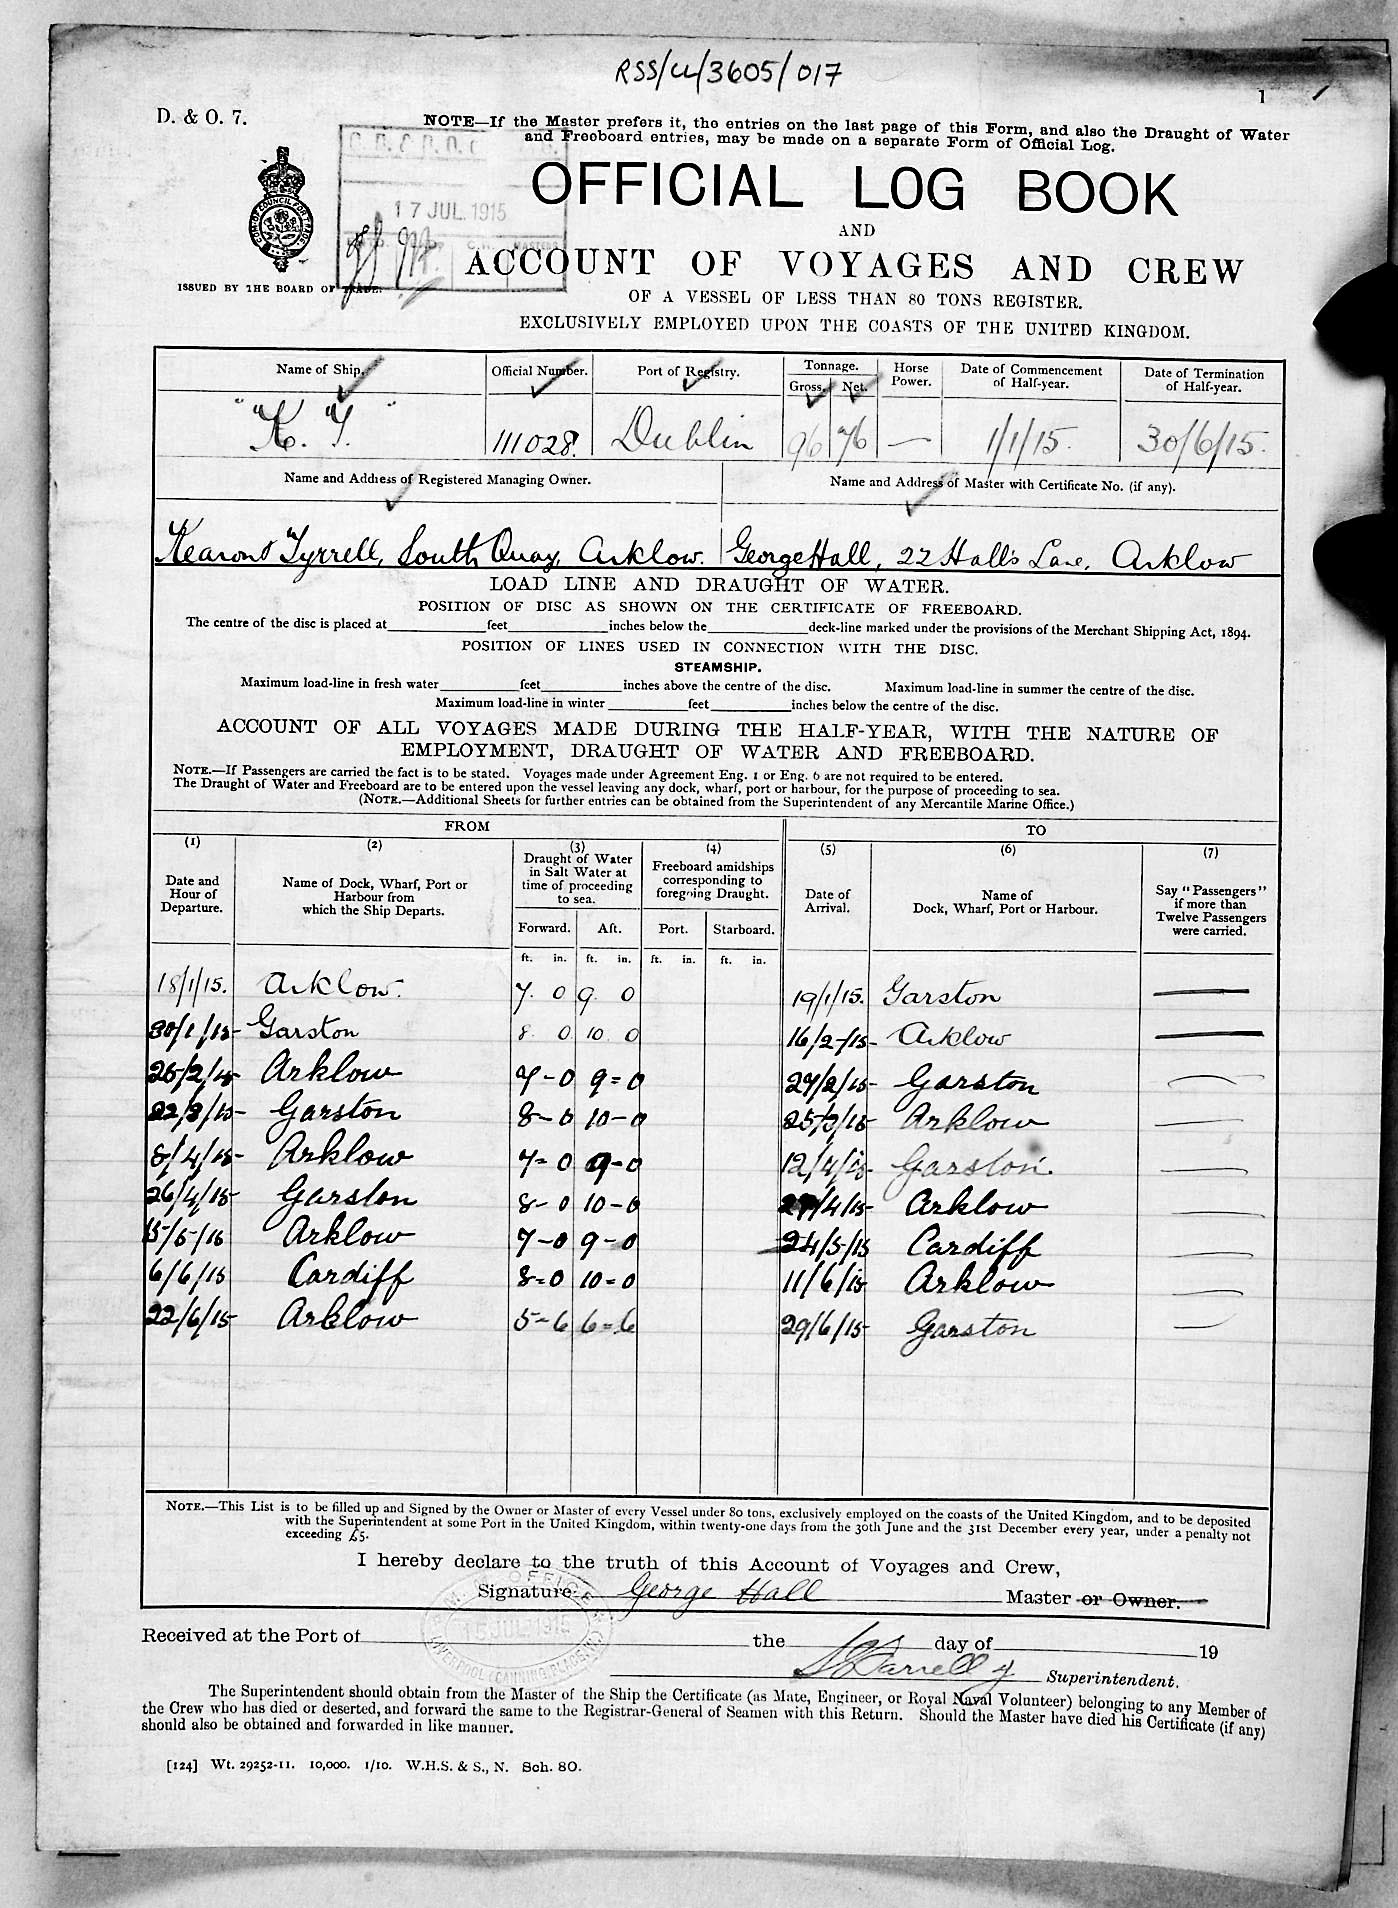 RSS/CL/3605/017
1
D. & O. 7.
NOTE—If the Master prefers it, the entries on the last page of this Form, and also the Draught of Water
and Freeboard entries, may be made on a separate Form of Official Log.
17 JUL. 1915
OFFICIAL LOG BOOK
AND
ACCOUNT OF VOYAGES AND CREW
ISSUED BY THE BOARD OF TRADE.
OF A VESSEL OF LESS THAN 80 TONS REGISTER.
EXCLUSIVELY EMPLOYED UPON THE COASTS OF THE UNITED KINGDOM.
Name of Ship. Official Number. Port of Registry. Tonnage. Gross. Net. Horse Power. Date of Commencement of Half-year. Date of Termination of Half-year.
"K. T." 111028. Dublin 96 76 — 1/1/15. 30/6/15.
Name and Address of Registered Managing Owner. Name and Address of Master with Certificate No. (if any).
Kearon & Tyrrell, South Quay, Arklow. George Hall, 22 Hall's Lane, Arklow
LOAD LINE AND DRAUGHT OF WATER.
POSITION OF DISC AS SHOWN ON THE CERTIFICATE OF FREEBOARD.
The centre of the disc is placed at feet inches below the deck-line marked under the provisions of the Merchant Shipping Act, 1894.
POSITION OF LINES USED IN CONNECTION WITH THE DISC.
STEAMSHIP.
Maximum load-line in fresh water feet inches above the centre of the disc. Maximum load-line in summer the centre of the disc.
Maximum load-line in winter feet inches below the centre of the disc.
ACCOUNT OF ALL VOYAGES MADE DURING THE HALF-YEAR, WITH THE NATURE OF
EMPLOYMENT, DRAUGHT OF WATER AND FREEBOARD.
NOTE.—If Passengers are carried the fact is to be stated. Voyages made under Agreement Eng. 1 or Eng. 6 are not required to be entered.
The Draught of Water and Freeboard are to be entered upon the vessel leaving any dock, wharf, port or harbour, for the purpose of proceeding to sea.
(NOTE.—Additional Sheets for further entries can be obtained from the Superintendent of any Mercantile Marine Office.)
FROM TO
(1) (2) (3) (4) (5) (6) (7)
Date and Hour of Departure. Name of Dock, Wharf, Port or Harbour from which the Ship Departs. Draught of Water in Salt Water at time of proceeding to sea. Freeboard amidships corresponding to foregoing Draught. Date of Arrival. Name of Dock, Wharf, Port or Harbour. Say "Passengers" if more than Twelve Passengers were carried.
Forward. Aft. Port. Starboard.
ft. in. ft. in. ft. in. ft. in.
18/1/15. Arklow. 7. 0 9. 0 19/1/15. Garston —
30/1/15 Garston 8. 0 10. 0 16/2/15 Arklow —
25/2/15 Arklow 7-0 9=0 27/2/15 Garston —
22/3/15 Garston 8-0 10-0 25/3/15 Arklow —
8/4/15 Arklow 7=0 9-0 12/4/15 Garston. —
26/4/15 Garston 8-0 10-0 /4/15 Arklow —
15/5/15 Arklow 7-0 9-0 24/5/15 Cardiff —
6/6/15 Cardiff 8=0 10=0 11/6/15 Arklow —
22/6/15 Arklow 5-6 6=6 29/6/15 Garston —
NOTE.—This List is to be filled up and Signed by the Owner or Master of every Vessel under 80 tons, exclusively employed on the coasts of the United Kingdom, and to be deposited
with the Superintendent at some Port in the United Kingdom, within twenty-one days from the 30th June and the 31st December every year, under a penalty not
exceeding £5.
I hereby declare to the truth of this Account of Voyages and Crew,
Signature George Hall Master or Owner.
M. M. OFFICE
15 JUL 1915
LIVERPOOL (CANNING PLACE)
Received at the Port of the day of 19
Superintendent.
The Superintendent should obtain from the Master of the Ship the Certificate (as Mate, Engineer, or Royal Naval Volunteer) belonging to any Member of
the Crew who has died or deserted, and forward the same to the Registrar-General of Seamen with this Return. Should the Master have died his Certificate (if any)
should also be obtained and forwarded in like manner.
[124] Wt. 29252-11. 10,000. 1/10. W.H.S. & S., N. Sch. 80.